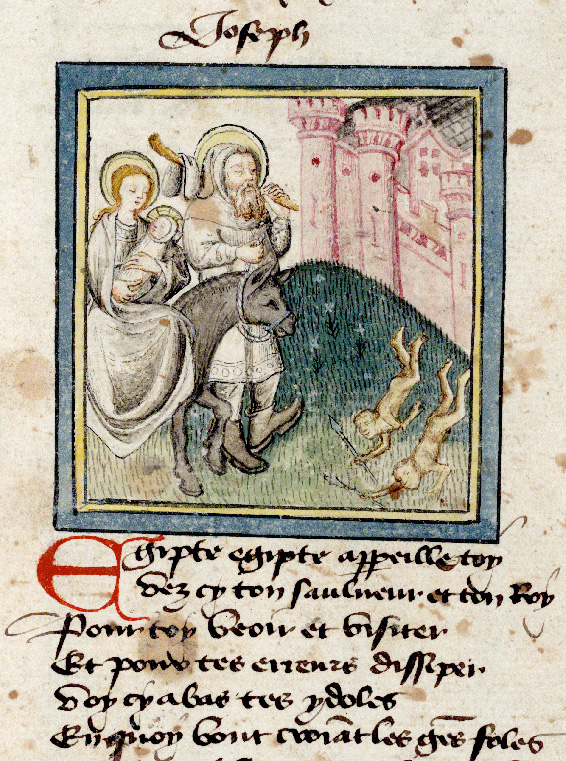 Joseph
Egipte egipte appeille toy
Vez cy ton saulueur et ton Roy
Pour toy veoir et visiter
Et pour tes erreurs dissiper
Voy cy abas tes ydoles
En quoy vont croiāt les gēs foles